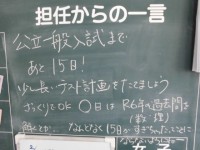 担任からの一言
公立一般入試まで
あと15日!
テスト計画をたてましょう
ざっくりでOK ○日は R6年の過去問を
(数・理)
なんとなく15日が